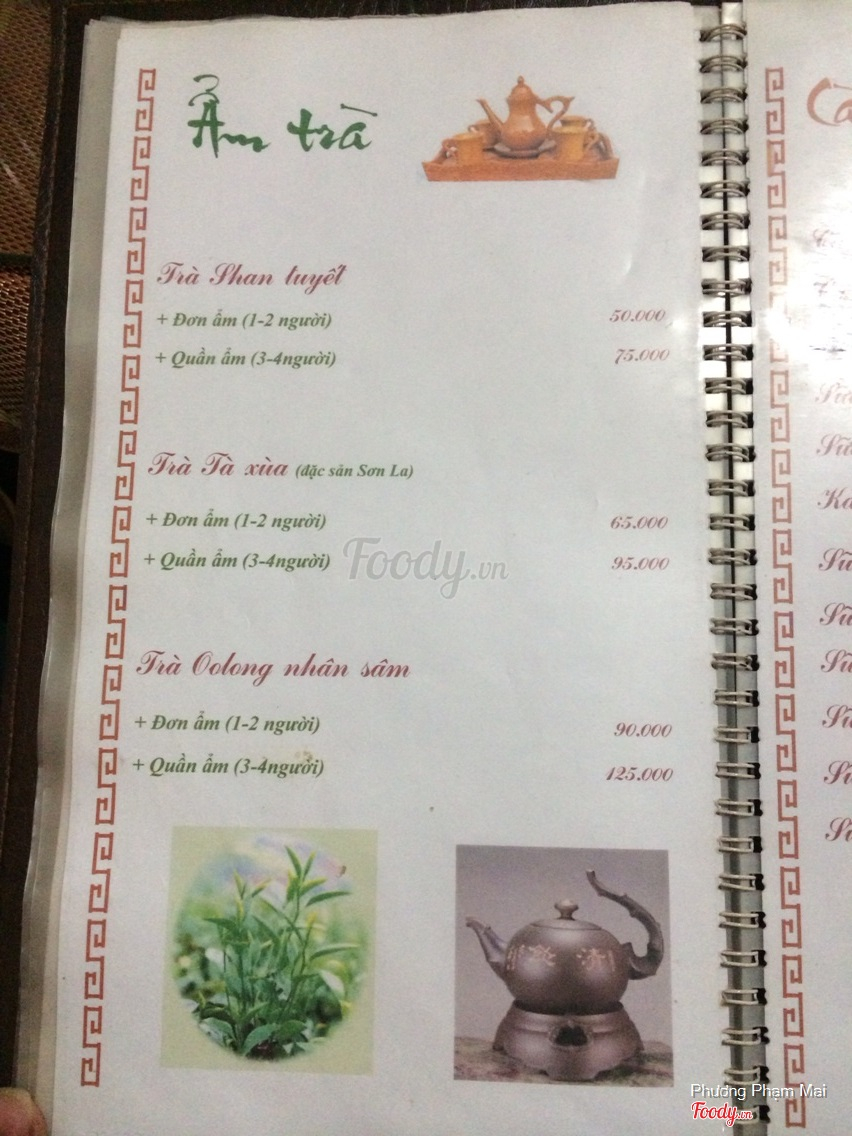 Ẩm trà
Trà Shan tuyết
+ Đơn ẩm (1-2 người) 50.000
+ Quần ẩm (3-4người) 75.000
Trà Tà xùa (đặc sản Sơn La)
+ Đơn ẩm (1-2 người) 65.000
+ Quần ẩm (3-4người) 95.000
Foody.vn
Trà Oolong nhân sâm
+ Đơn ẩm (1-2 người) 90.000
+ Quần ẩm (3-4người) 125.000
Phương Phạm Mai
Foody.vn